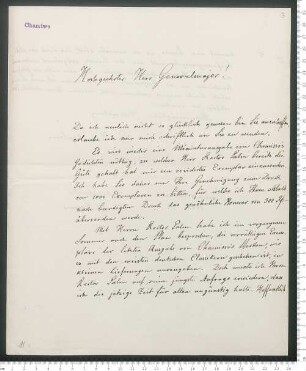 Chamisso
Hochgeehrter Herr Generalmajor!
Da ich neulich nicht so glücklich gewesen bin Sie anzutreffen
erlaube ich mir mich schriftlich an Sie zu wenden.
Es wird wieder eine Miniaturausgabe von Chamissos
Gedichten nöthig, zu welcher Herr Rector Palm bereits die
Güte gehabt hat mir ein revidirtes Exemplar
Ich habe Sie daher um Ihre Genehmigung zum Druck
von 2000 Exemplaren zu bitten, für welche ich Ihnen alsbald
nach beendigtem Druck das Honorar von 300
übersenden werde.
Mit Herrn Rector Palm habe ich im vergangenen
Sommer auch den Plan besprochen, die vorräthigen Exem-
plare der letzten Ausgabe von Chamisso's Werken, wie
es mit den meisten deutschen Classikern geschehen ist, in
kleinen Lieferungen auszugeben. Doch mußte ich Herrn
Rector Palm auf seine jüngste Anfrage erwiedern, daß
ich die jetzige Zeit für allzu ungünstig halte.